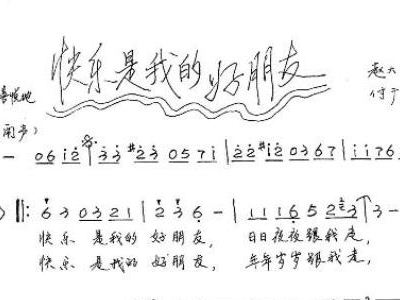 快乐是我的好朋友
喜悦地
赵大
付于
阔步）
— 0 6 1 2 | 3 3 #2 3 0 5 7 1 | 2 2 #1 2 0 3 6 7 | 1 1 7 6
6 3 0 3 2 1 | 2 3 6 — | 1 1 1 6 5 2 3 | 3 —
快乐 是我的 好朋友， 日日夜夜跟我走，
快乐 是我的 好朋友， 年年岁岁跟我走，